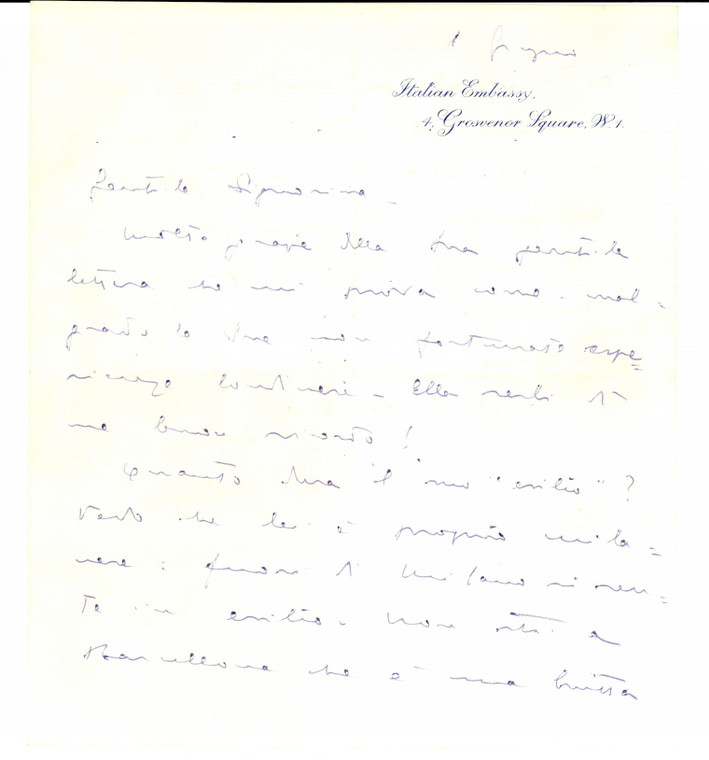 1 Giugno
Italian Embassy,
4, Grosvenor Square, W.1.
Gentile Signorina -
molte grazie della Sua gentile
lettera che mi prova come, mal=
grado la Sua non fortunata espe=
rienza londinese - Ella serbi di
me buon ricordo!
Quanto dura il suo "esilio"?
Vedo che lei è proprio mila=
nese: fuori di Milano si sen=
te in esilio. Non stia a
Barcellona che è una brutta